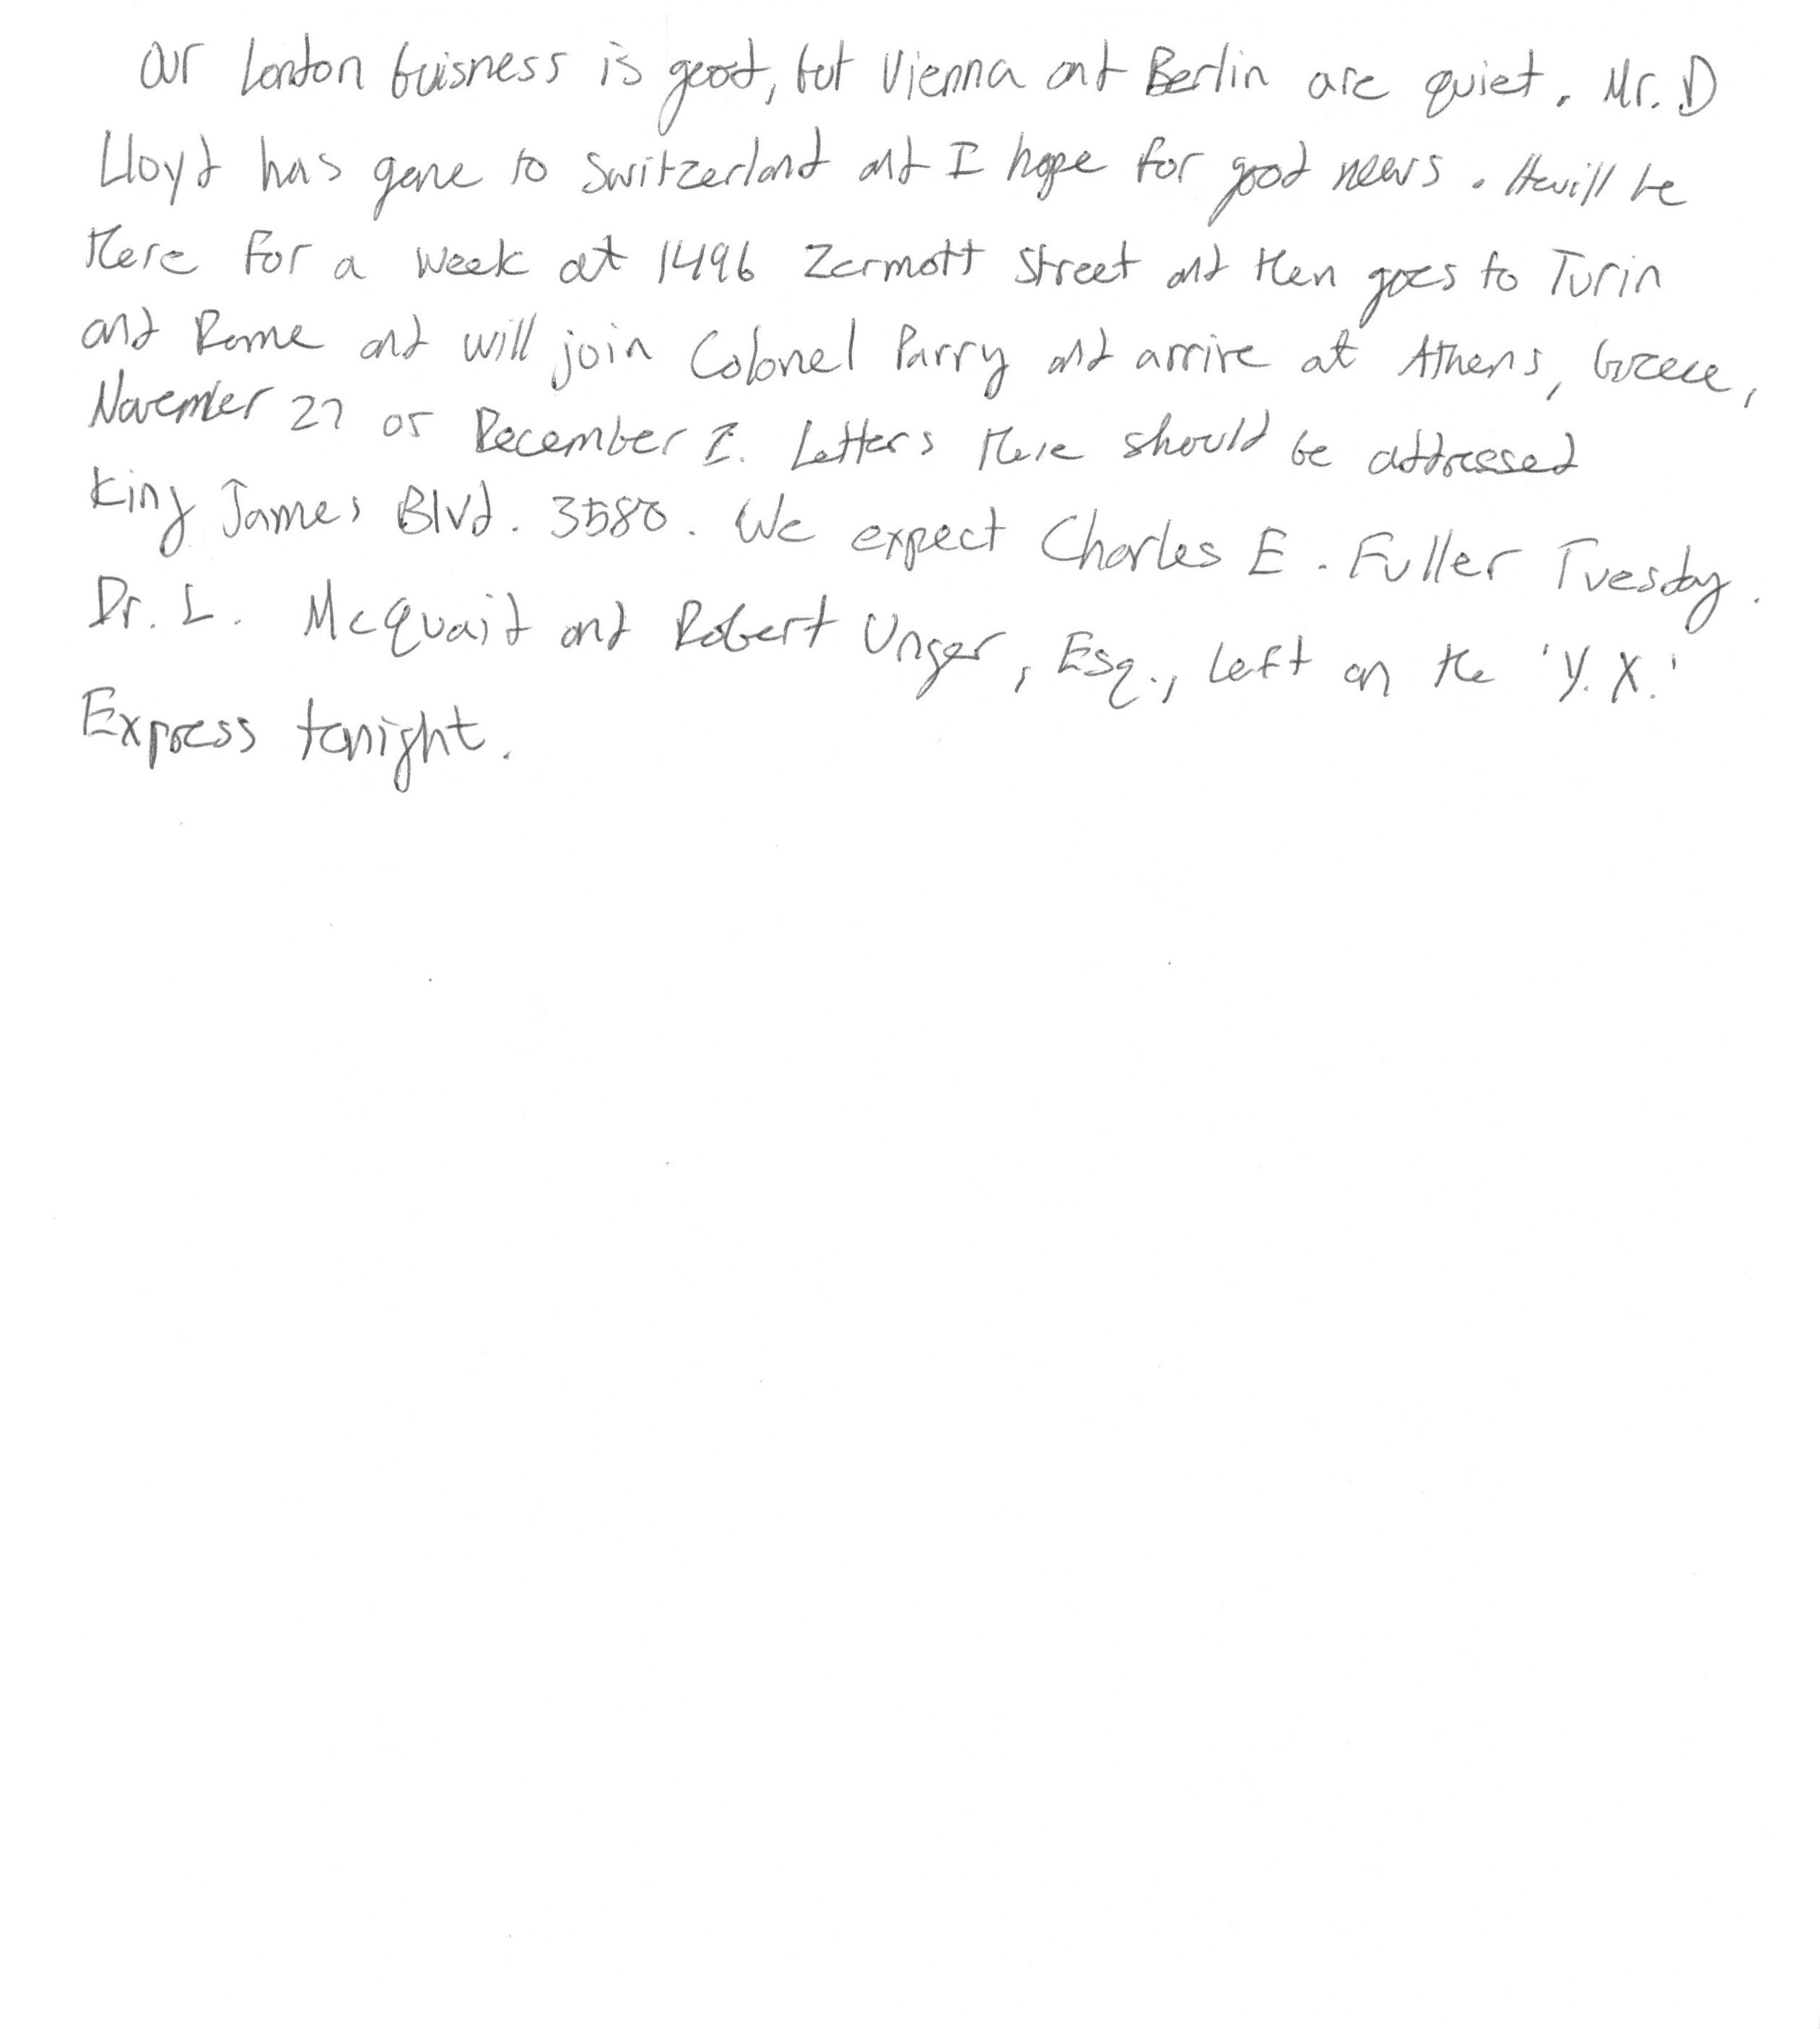 Our London buisness is good, but Vienna and Berlin are quiet. Mr. D
Lloyd has gone to Switzerland and I hope for good news. He will be
there for a week at 1496 Zermott Street and then goes to Turin
and Rome and will join Colonel Parry and arrive at Athens, Greece,
November 27 or December I. Letters there should be addressed
King James Blvd. 3580. We expect Charles E. Fuller Tuesday.
Dr. L. McQuaid and Robert Unger, Esq., left on the 'Y.X.'
Express tonight.